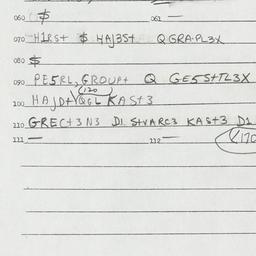 060 $ 061 —
070 H1RS+ $ HAJ3S+ QGRA.PL3X
080 $
090 PE5RL, GROUP+ Q GE5S+TL3X
(120
100 HAJD+ Q&L KAS+3
110 GREC+3 N3 D1 S+VARC3 KAS+3 D1
111 — 112 — (170